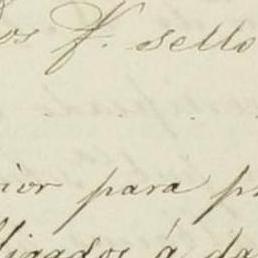 os f. sello
rior para p
ligados á da